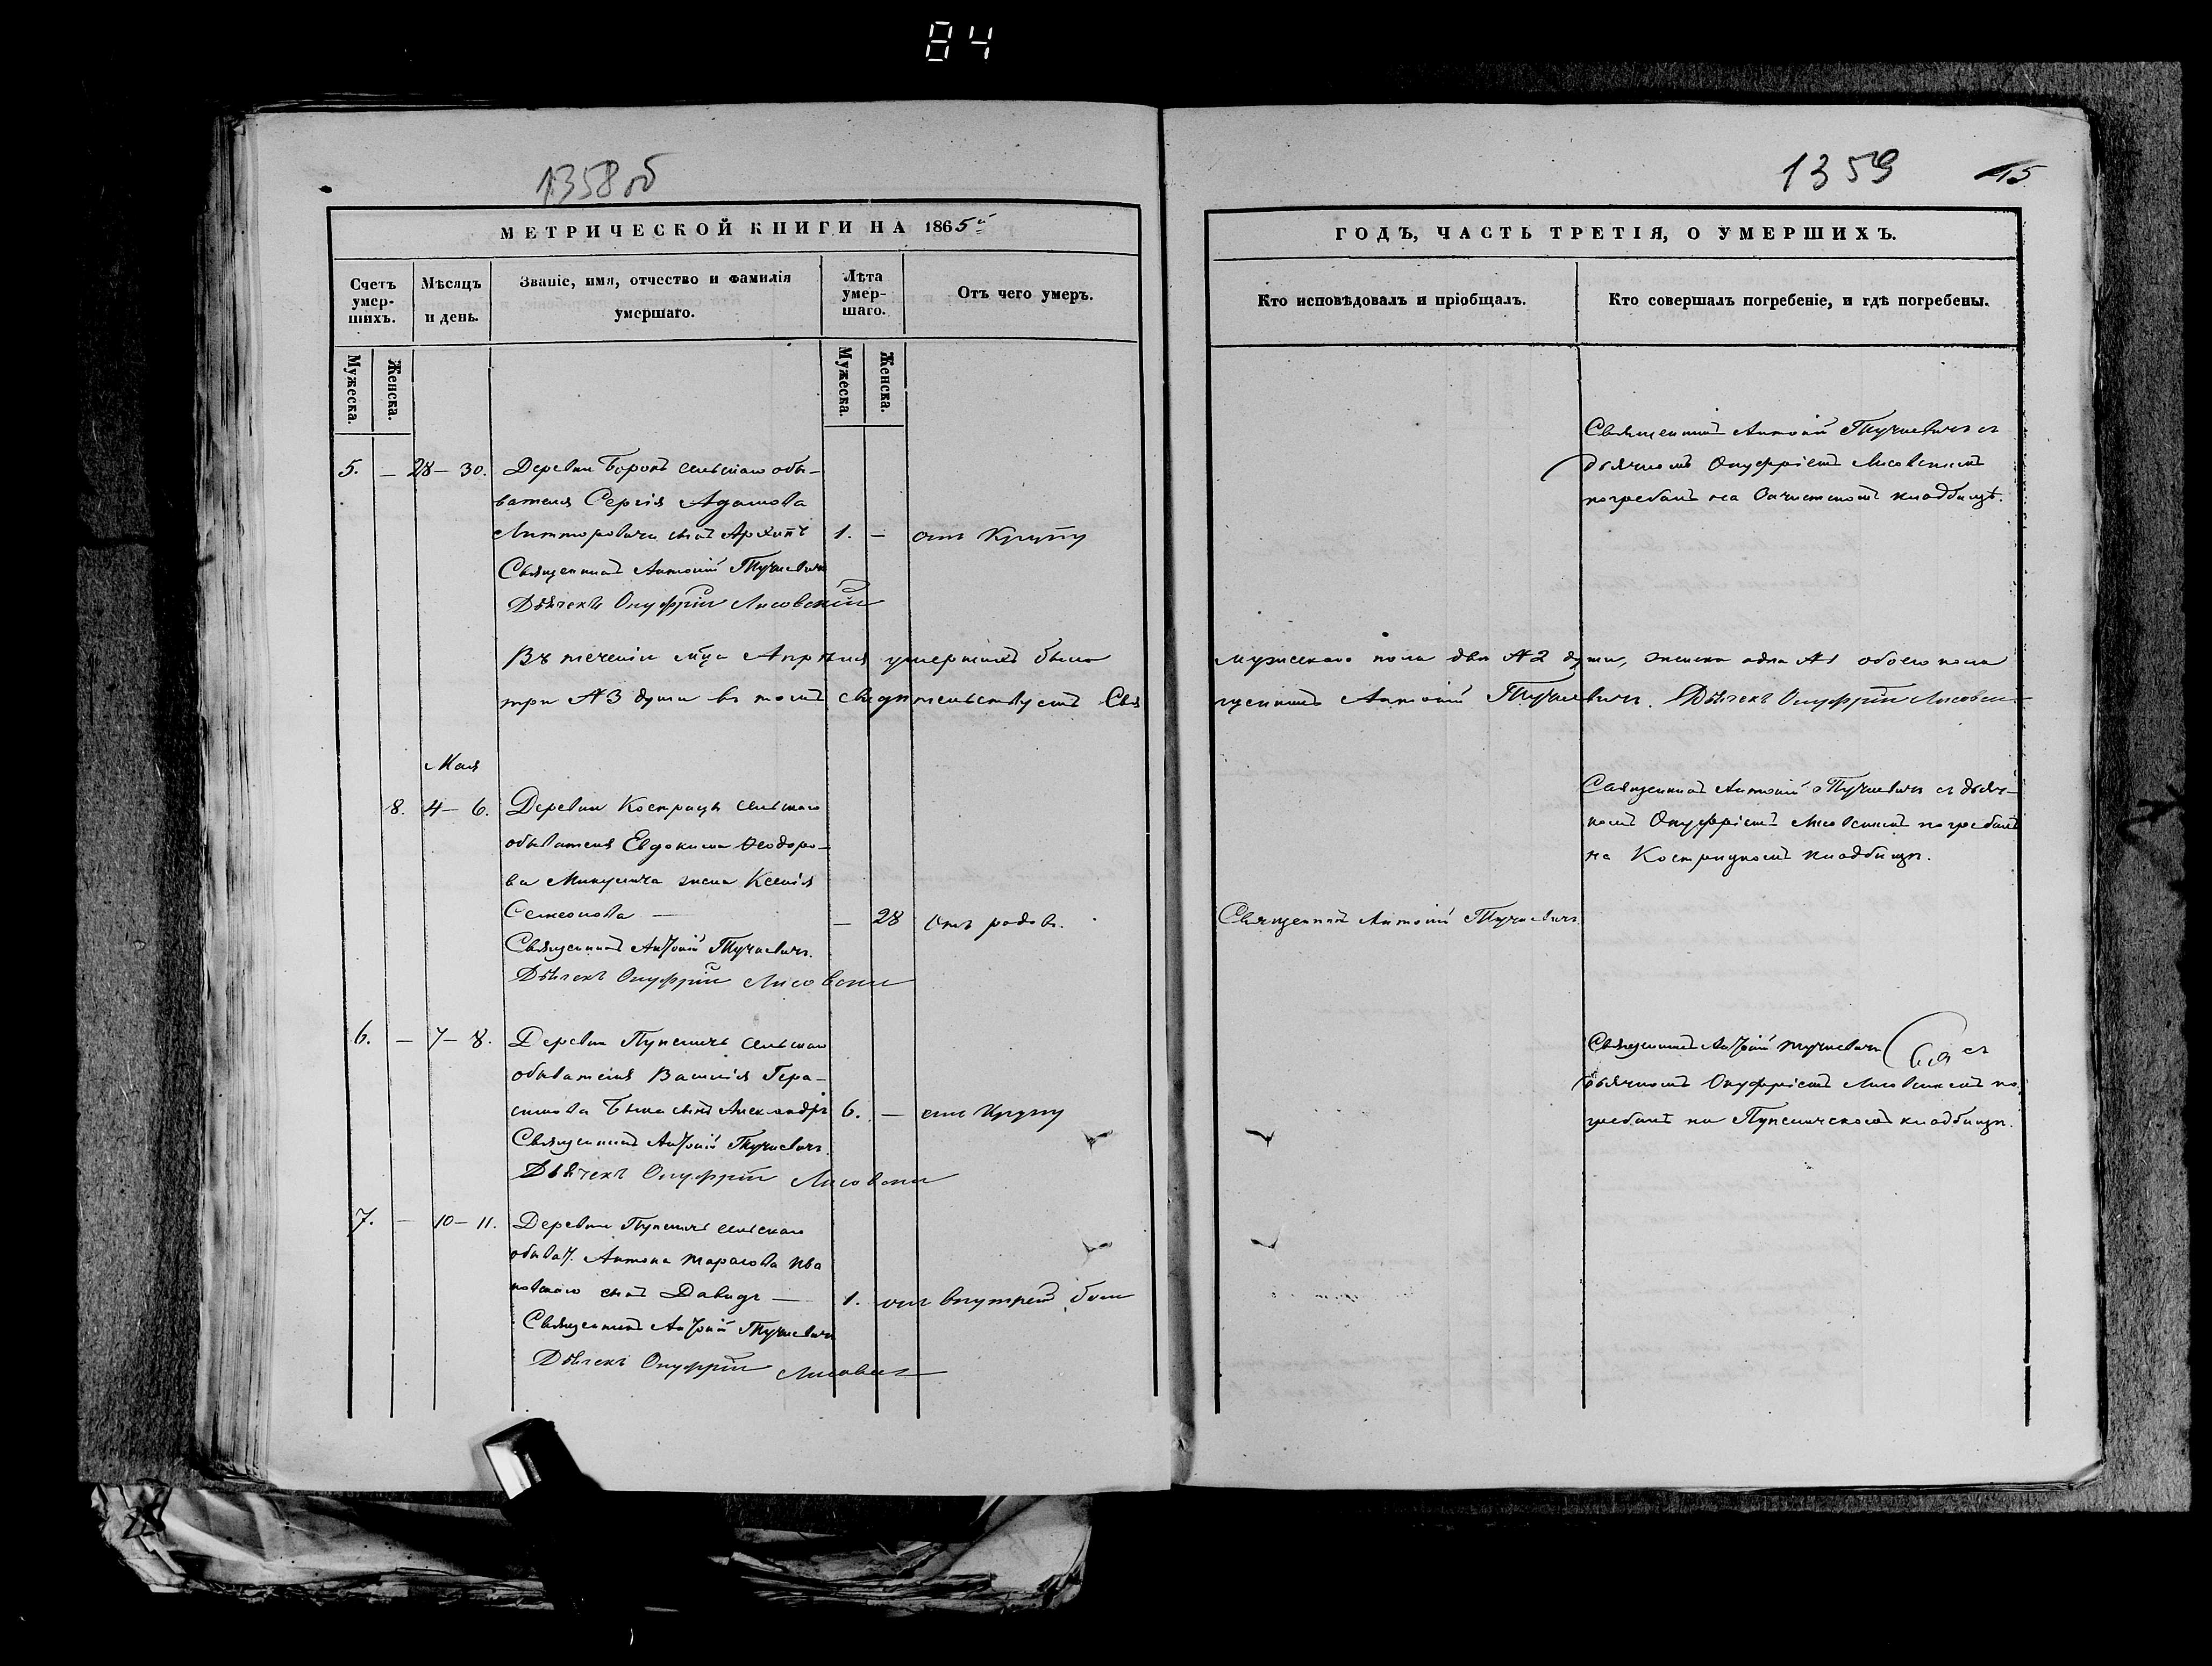 84
1358об
МЕТРИЧЕСКОЙ КНИГИ НА 1865й
Счетъ умер-шихъ.
Мѣсяцъ и день.
Званіе, имя, отчество и фамилія умершаго.
Лѣта умер-шаго.
Отъ чего умеръ.
Мужеска.
Женска.
Мужеска.
Женска.
5. — 28 — 30. Деревни Боровъ сельскаго обы-
вателя Сергія Адамова
сынъ Архипъ 1. — отъ Крупу
Священникъ Антоній Тучкевичъ
Дьячекъ Онуфрій Лисовскій
Въ теченіи мца Апрѣля умершихъ было
три №3 души въ томъ свидѣтельствуетъ Свя
Мая
8. 4 — 6. Деревни Костриць сельскаго
обывателя Евдокима Ѳеодоро-
ва Микулича жена Ксенія
Семеонова — — 28 отъ родовъ.
Священникъ Антоній Тучкевичъ.
Дьячекъ Онуфрій Лисовски
6. — 7 — 8. Деревни Пупеличъ сельскаго
обывателя Василія Гера-
симова Быка сынъ Александръ 6. — отъ Крупу
Священникъ Антоній Тучкевичъ.
Дьячекъ Онуфрій Лисовски
7. — 10 — 11. Деревни Пупеличъ сельскаго
обыват. Антона Тарасова Ива
новскаго сынъ Давидъ — 1. отъ внутрен боли
Священникъ Антоній Тучкевичъ
Дьячекъ Онуфрій Лисовск
1359
15
ГОДЪ, ЧАСТЬ ТРЕТІЯ, О УМЕРШИХЪ.
Кто исповѣдовалъ и пріобщалъ.
Кто совершалъ погребеніе, и гдѣ погребены.
Священникъ Антоній Тучкевичъ съ
дьячкомъ Онуфріемъ Лисовскимъ
погребалъ на кладбищѣ.
мужескаго пола двѣ №2 души, женска одна №1 обоего пола
щенникъ Антоній Тучкевичъ. Дьячекъ Онуфрій Лисовски
Священникъ Антоній Тучкевичъ съ дьяч-
комъ Онуфріемъ Лисовскимъ погребалъ
на Кострицкомъ кладбищѣ.
Священникъ Антоній Тучкевичъ
Священникъ Антоній Тучкевичъ съ
дьячкомъ Онуфріемъ Лисовскимъ по
гребалъ на Пупеличскомъ кладбищѣ.